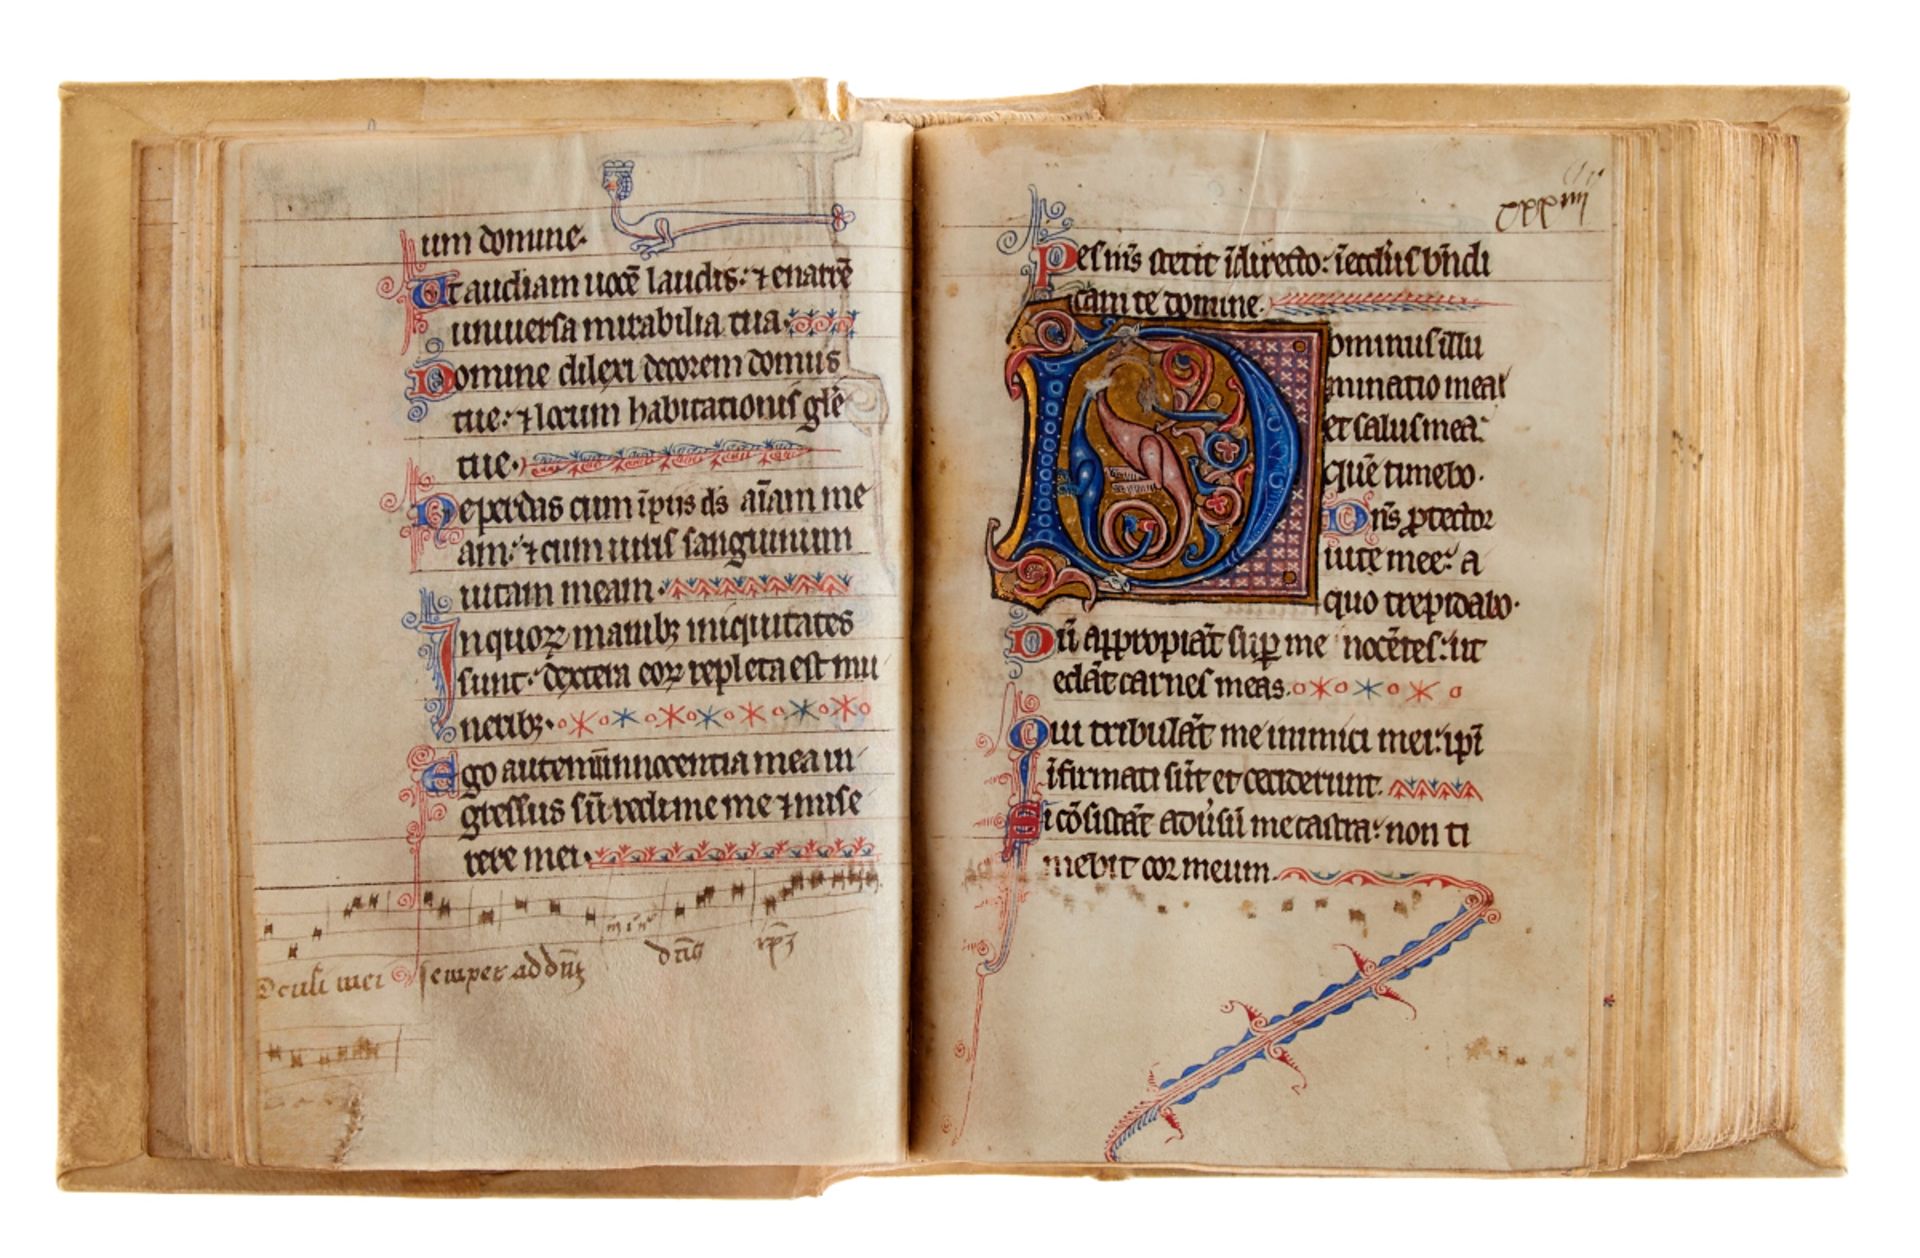 um domine.
Ut audiam uocē laudis: ⁊ enarrē
uniuersa mirabilia tua.
Domine dilexi decorem domus
tue: ⁊ locum habitationis glē
tue.
Ne perdas cum īpiis ds aīam me
am: ⁊ cum uiris sanguinum
uitam meam.
In quoꝝ manibꝫ iniquitates
sunt: dextera eoꝝ repleta est mu
neribꝫ.
Ego autem in innocentia mea in
gressus sū redime me ⁊ mise
rere mei.
Oculi mei semper ad dn̄ꝫ
xxxiiii
Pes m̄s stetit ī directo: ī eccl̓iis bn̄di
cam te domine.
Dominus illu
minatio mea
et salus mea:
quē timebo.
Dn̄s ꝓtector
uite mee: a
quo trepidabo.
Dū appropiāt suꝑ me nocētes: ut
edāt carnes meas.
Qui tribulāt me inimici mei: ipī
īfirmati sūt et ceciderunt.
Si cōsistāt adu̓sū me castra: non ti
mebit cor meum.